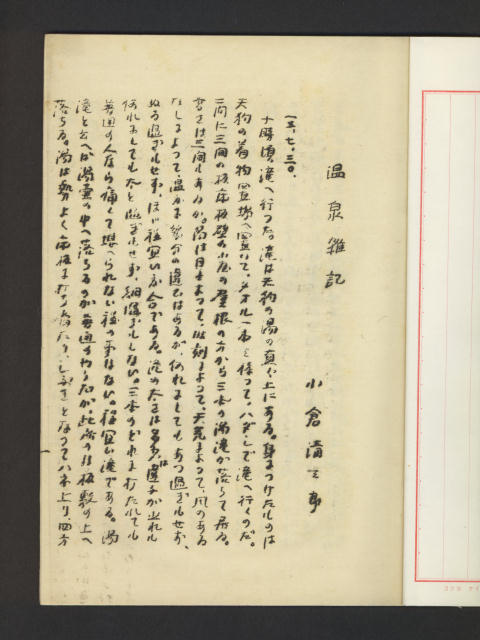 温泉雑記
小倉清三郎
一五、七、三〇、
十勝頃滝へ行つた。滝は天狗の湯の真や上にある。身につけたものは
天狗の着物置場へ置いて、タオル一本を持つて、ハダシで滝へ行くのだ。
三間に三間の板床板壁の小屋の屋根の方から三本の湯滝が落ちて居る。
高さは三間もあるか。湯は日によつて、時刻によつて、天気によつて、風のある
なしによつて、温かさ幾分の違ひはあるが、何れにしてもあつ過ぎもせず、
ぬる過ぎもせず、ほぼ程宜い合である。滝の太さは多少違ひが之れにも
何れにしても太と過ぎもせず、細過ぎもしない。三本のどれに打たれても
普通の人なら痛くて堪へられない程の事はない。程宜い滝である。湯
滝と云へば湯壷の中へ落ちるのが普通のやうだが、此所のは板敷の上へ
落ちる。湯は勢よく床板に打ち当たり、しぶきとなつてハネ上り、四方